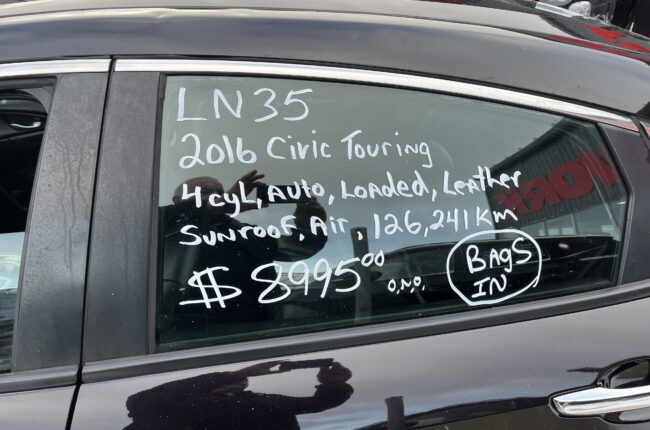 LN35
2016 Civic Touring
4cyL, Auto, Loaded, Leather
Sunroof, Air, 126,241 Km
$8995⁰⁰ O.N.O.
BAgS
IN